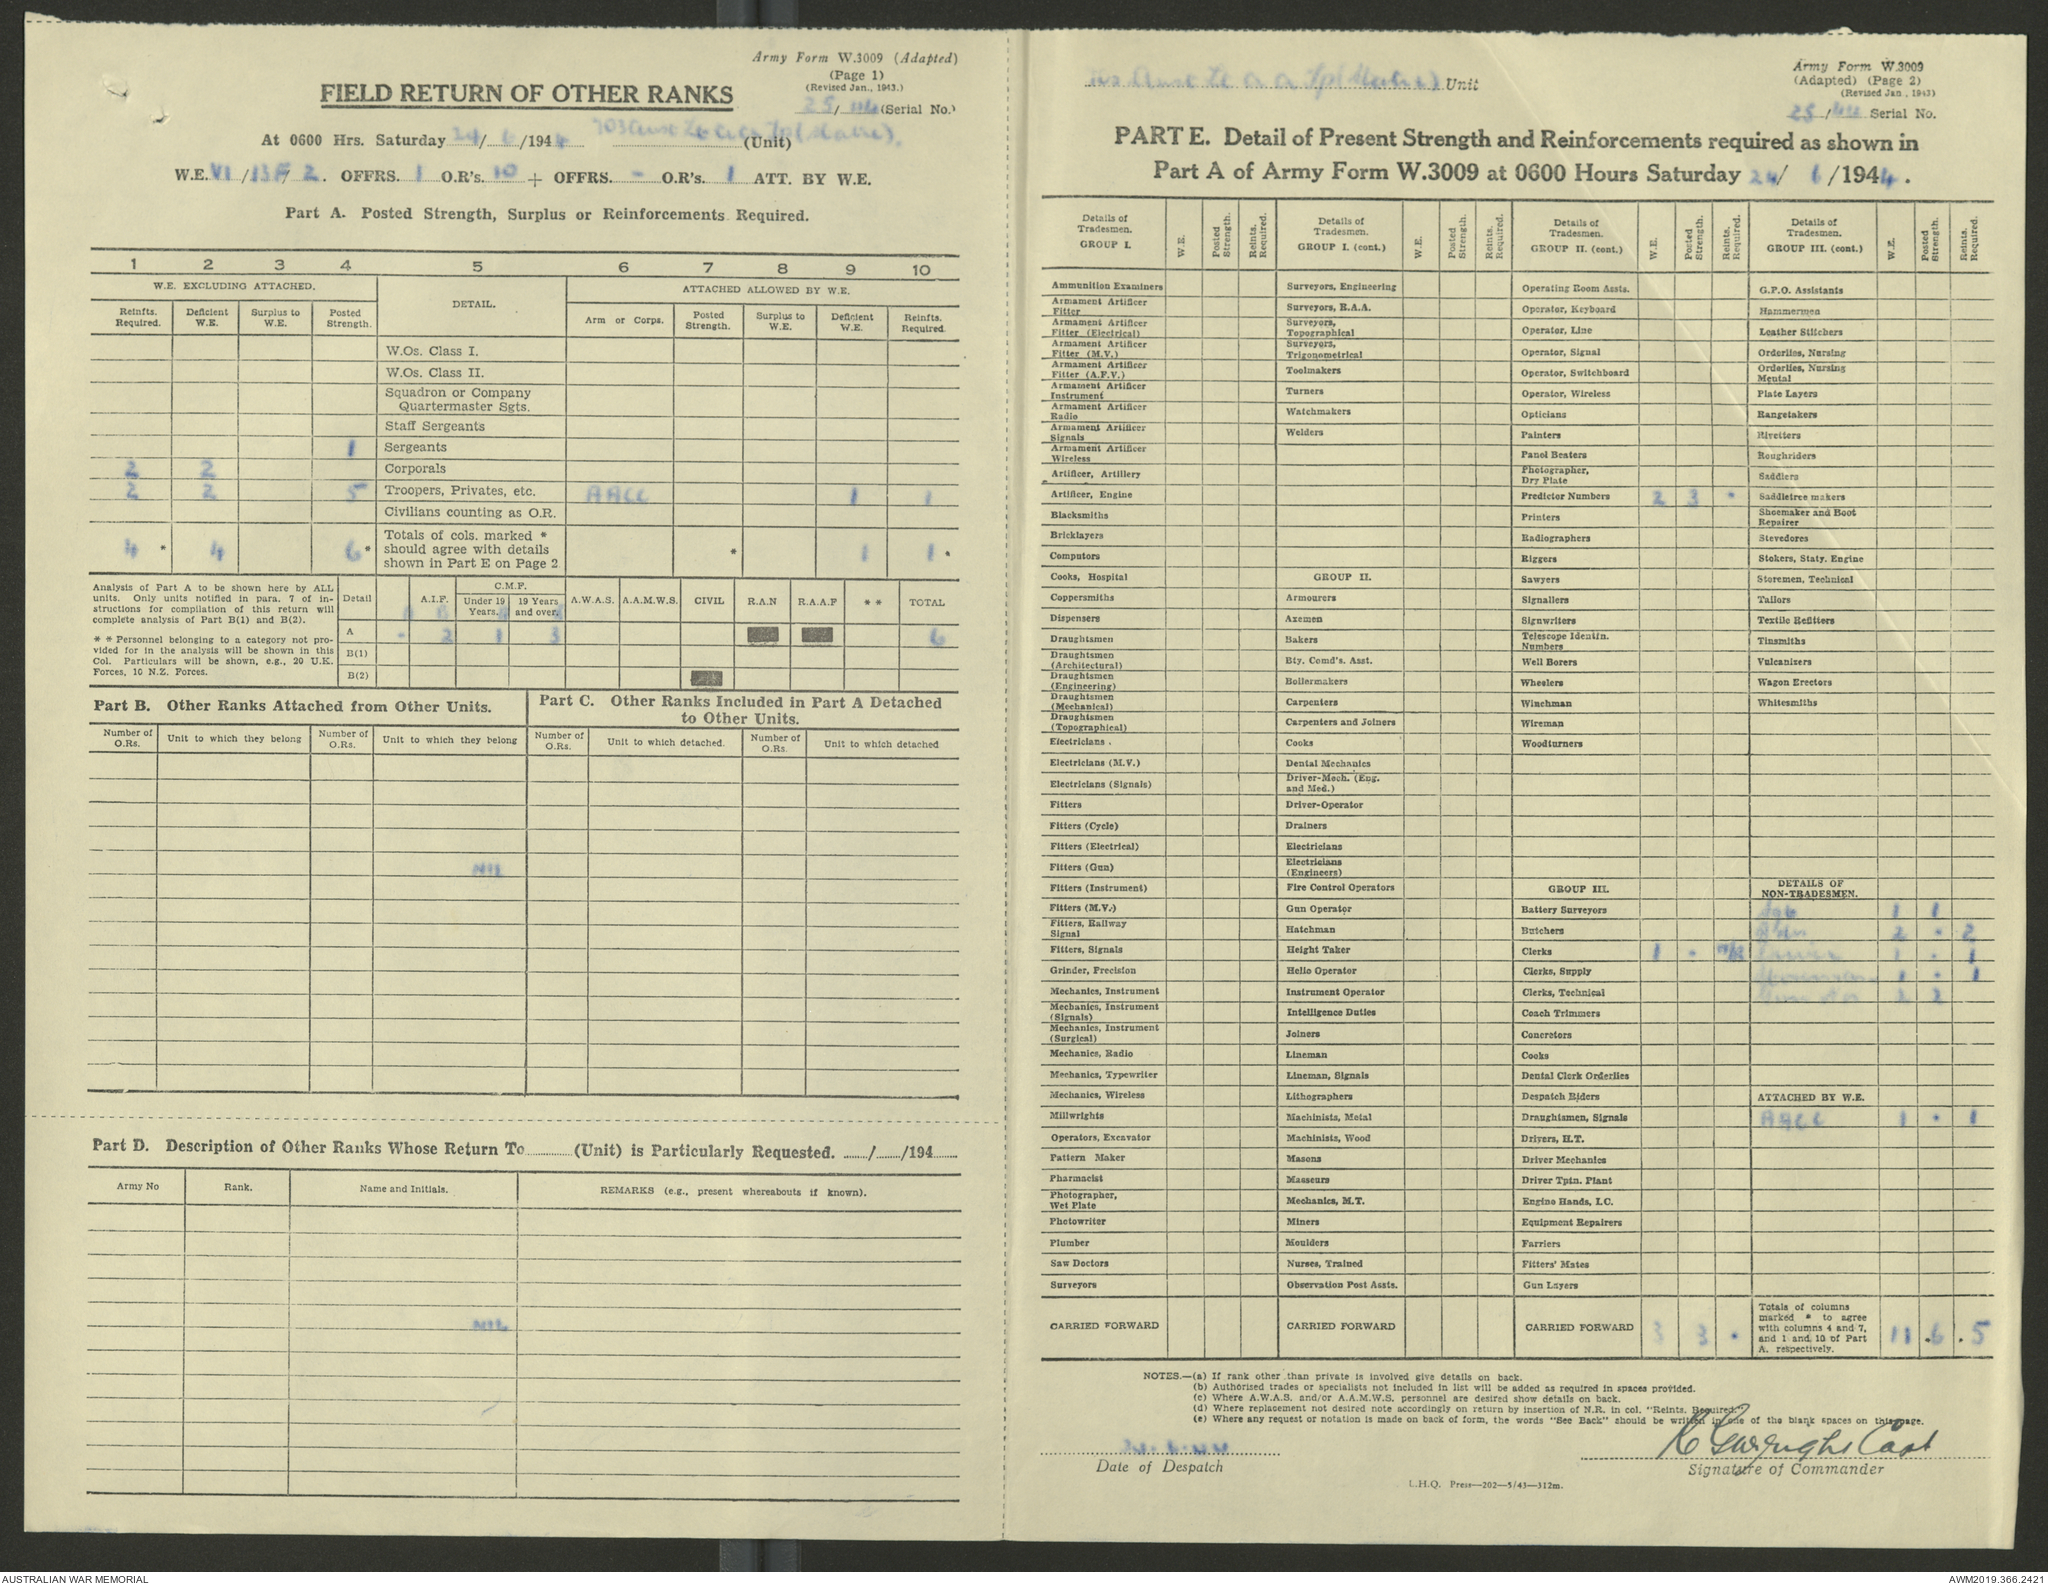 Army Form W.3009 (Adapted)
(Page 1)
(Revised Jan., 1943.)
25/44 (Serial No.)
FIELD RETURN OF OTHER RANKS
At 0600 Hrs. Saturday 24/6/1944 (Unit)
W.E. VI/13F/2. OFFRS. 1 O.R's. 10 + OFFRS. - O.R's. 1 ATT. BY W.E.
Part A. Posted Strength, Surplus or Reinforcements Required.
1 2 3 4 5 6 7 8 9 10
W.E. EXCLUDING ATTACHED. DETAIL. ATTACHED ALLOWED BY W.E.
Reinfts. Required. Deficient W.E. Surplus to W.E. Posted Strength. Arm or Corps. Posted Strength. Surplus to W.E. Deficient W.E. Reinfts. Required.
W.Os. Class I.
W.Os. Class II.
Squadron or Company
Quartermaster Sgts.
Staff Sergeants
1 Sergeants
2 2 Corporals
2 2 5 Troopers, Privates, etc. AACC 1 1
Civilians counting as O.R.
4 * 4 6 * Totals of cols. marked * should agree with details shown in Part E on Page 2 * 1 1 *
Analysis of Part A to be shown here by ALL
units. Only units notified in para. 7 of in-
structions for compilation of this return will
complete analysis of Part B(1) and B(2).
* * Personnel belonging to a category not pro-
vided for in the analysis will be shown in this
Col. Particulars will be shown, e.g., 20 U.K.
Forces, 10 N.Z. Forces.
Detail A.I.F. C.M.F. Under 19 Years. 19 Years and over. A.W.A.S. A.A.M.W.S. CIVIL R.A.N R.A.A.F * * TOTAL
A - 2 1 3 6
B(1)
B(2)
Part B. Other Ranks Attached from Other Units.
Part C. Other Ranks Included in Part A Detached
to Other Units.
Number of O.Rs. Unit to which they belong Number of O.Rs. Unit to which they belong Number of O.Rs. Unit to which detached. Number of O.Rs. Unit to which detached
NIL
Part D. Description of Other Ranks Whose Return To (Unit) is Particularly Requested. / /194
Army No Rank. Name and Initials. REMARKS (e.g., present whereabouts if known).
NIL
Unit
Army Form W.3009
(Adapted) (Page 2)
(Revised Jan., 1943)
25/44 Serial No.
PART E. Detail of Present Strength and Reinforcements required as shown in
Part A of Army Form W.3009 at 0600 Hours Saturday 24/6/1944.
Details of Tradesmen. GROUP I. W.E. Posted Strength. Reints. Required.
Ammunition Examiners
Armament Artificer Fitter
Armament Artificer Fitter (Electrical)
Armament Artificer Fitter (M.V.)
Armament Artificer Fitter (A.F.V.)
Armament Artificer Instrument
Armament Artificer Radio
Armament Artificer Signals
Armament Artificer Wireless
Artificer, Artillery
Artificer, Engine
Blacksmiths
Bricklayers
Computors
Cooks, Hospital
Coppersmiths
Dispensers
Draughtsmen
Draughtsmen (Architectural)
Draughtsmen (Engineering)
Draughtsmen (Mechanical)
Draughtsmen (Topographical)
Electricians
Electricians (M.V.)
Electricians (Signals)
Fitters
Fitters (Cycle)
Fitters (Electrical)
Fitters (Gun)
Fitters (Instrument)
Fitters (M.V.)
Fitters, Railway Signal
Fitters, Signals
Grinder, Precision
Mechanics, Instrument
Mechanics, Instrument (Signals)
Mechanics, Instrument (Surgical)
Mechanics, Radio
Mechanics, Typewriter
Mechanics, Wireless
Millwrights
Operators, Excavator
Pattern Maker
Pharmacist
Photographer, Wet Plate
Photowriter
Plumber
Saw Doctors
Surveyors
CARRIED FORWARD
Details of Tradesmen. GROUP I. (cont.) W.E. Posted Strength. Reints. Required.
Surveyors, Engineering
Surveyors, R.A.A.
Surveyors, Topographical
Surveyors, Trigonometrical
Toolmakers
Turners
Watchmakers
Welders
GROUP II.
Armourers
Axemen
Bakers
Bty. Comd's. Asst.
Boilermakers
Carpenters
Carpenters and Joiners
Cooks
Dental Mechanics
Driver-Mech. (Eng. and Med.)
Driver-Operator
Drainers
Electricians
Electricians (Engineers)
Fire Control Operators
Gun Operator
Hatchman
Height Taker
Helio Operator
Instrument Operator
Intelligence Duties
Joiners
Lineman
Lineman, Signals
Lithographers
Machinists, Metal
Machinists, Wood
Masons
Masseurs
Mechanics, M.T.
Miners
Moulders
Nurses, Trained
Observation Post Assts.
CARRIED FORWARD
Details of Tradesmen. GROUP II. (cont.) W.E. Posted Strength. Reints. Required.
Operating Room Assts.
Operator, Keyboard
Operator, Line
Operator, Signal
Operator, Switchboard
Operator, Wireless
Opticians
Painters
Panel Beaters
Photographer, Dry Plate
Predictor Numbers 2 3 -
Printers
Radiographers
Riggers
Sawyers
Signallers
Signwriters
Telescope Identin. Numbers
Well Borers
Wheelers
Winchman
Wireman
Woodturners
GROUP III.
Battery Surveyors
Butchers
Clerks 1 -
Clerks, Supply
Clerks, Technical
Coach Trimmers
Concretors
Cooks
Dental Clerk Orderlies
Despatch Riders
Draughtsmen, Signals
Drivers, H.T.
Driver Mechanics
Driver Tptn. Plant
Engine Hands, I.C.
Equipment Repairers
Farriers
Fitters' Mates
Gun Layers
CARRIED FORWARD 3 3 -
Details of Tradesmen. GROUP III. (cont.) W.E. Posted Strength. Reints. Required.
G.P.O. Assistants
Hammermen
Leather Stitchers
Orderlies, Nursing
Orderlies, Nursing Mental
Plate Layers
Rangetakers
Rivetters
Roughriders
Saddlers
Saddletree makers
Shoemaker and Boot Repairer
Stevedores
Stokers, Staty. Engine
Storemen, Technical
Tailors
Textile Refitters
Tinsmiths
Vulcanizers
Wagon Erectors
Whitesmiths
DETAILS OF NON-TRADESMEN.
1 1
2 - 2
1 - 1
1 - 1
2 2
ATTACHED BY W.E.
AACC 1 - 1
Totals of columns marked * to agree with columns 4 and 7, and 1 and 10 of Part A. respectively. 11 . 6 . 5
NOTES.—(a) If rank other than private is involved give details on back.
(b) Authorised trades or specialists not included in list will be added as required in spaces provided.
(c) Where A.W.A.S. and/or A.A.M.W.S. personnel are desired show details on back.
(d) Where replacement not desired note accordingly on return by insertion of N.R. in col. "Reints. Required."
(e) Where any request or notation is made on back of form, the words "See Back" should be written in one of the blank spaces on this page.
24.6.44
Date of Despatch
Capt
Signature of Commander
L.H.Q. Press—202—5/43—312m.
AUSTRALIAN WAR MEMORIAL
AWM2019.366.2421